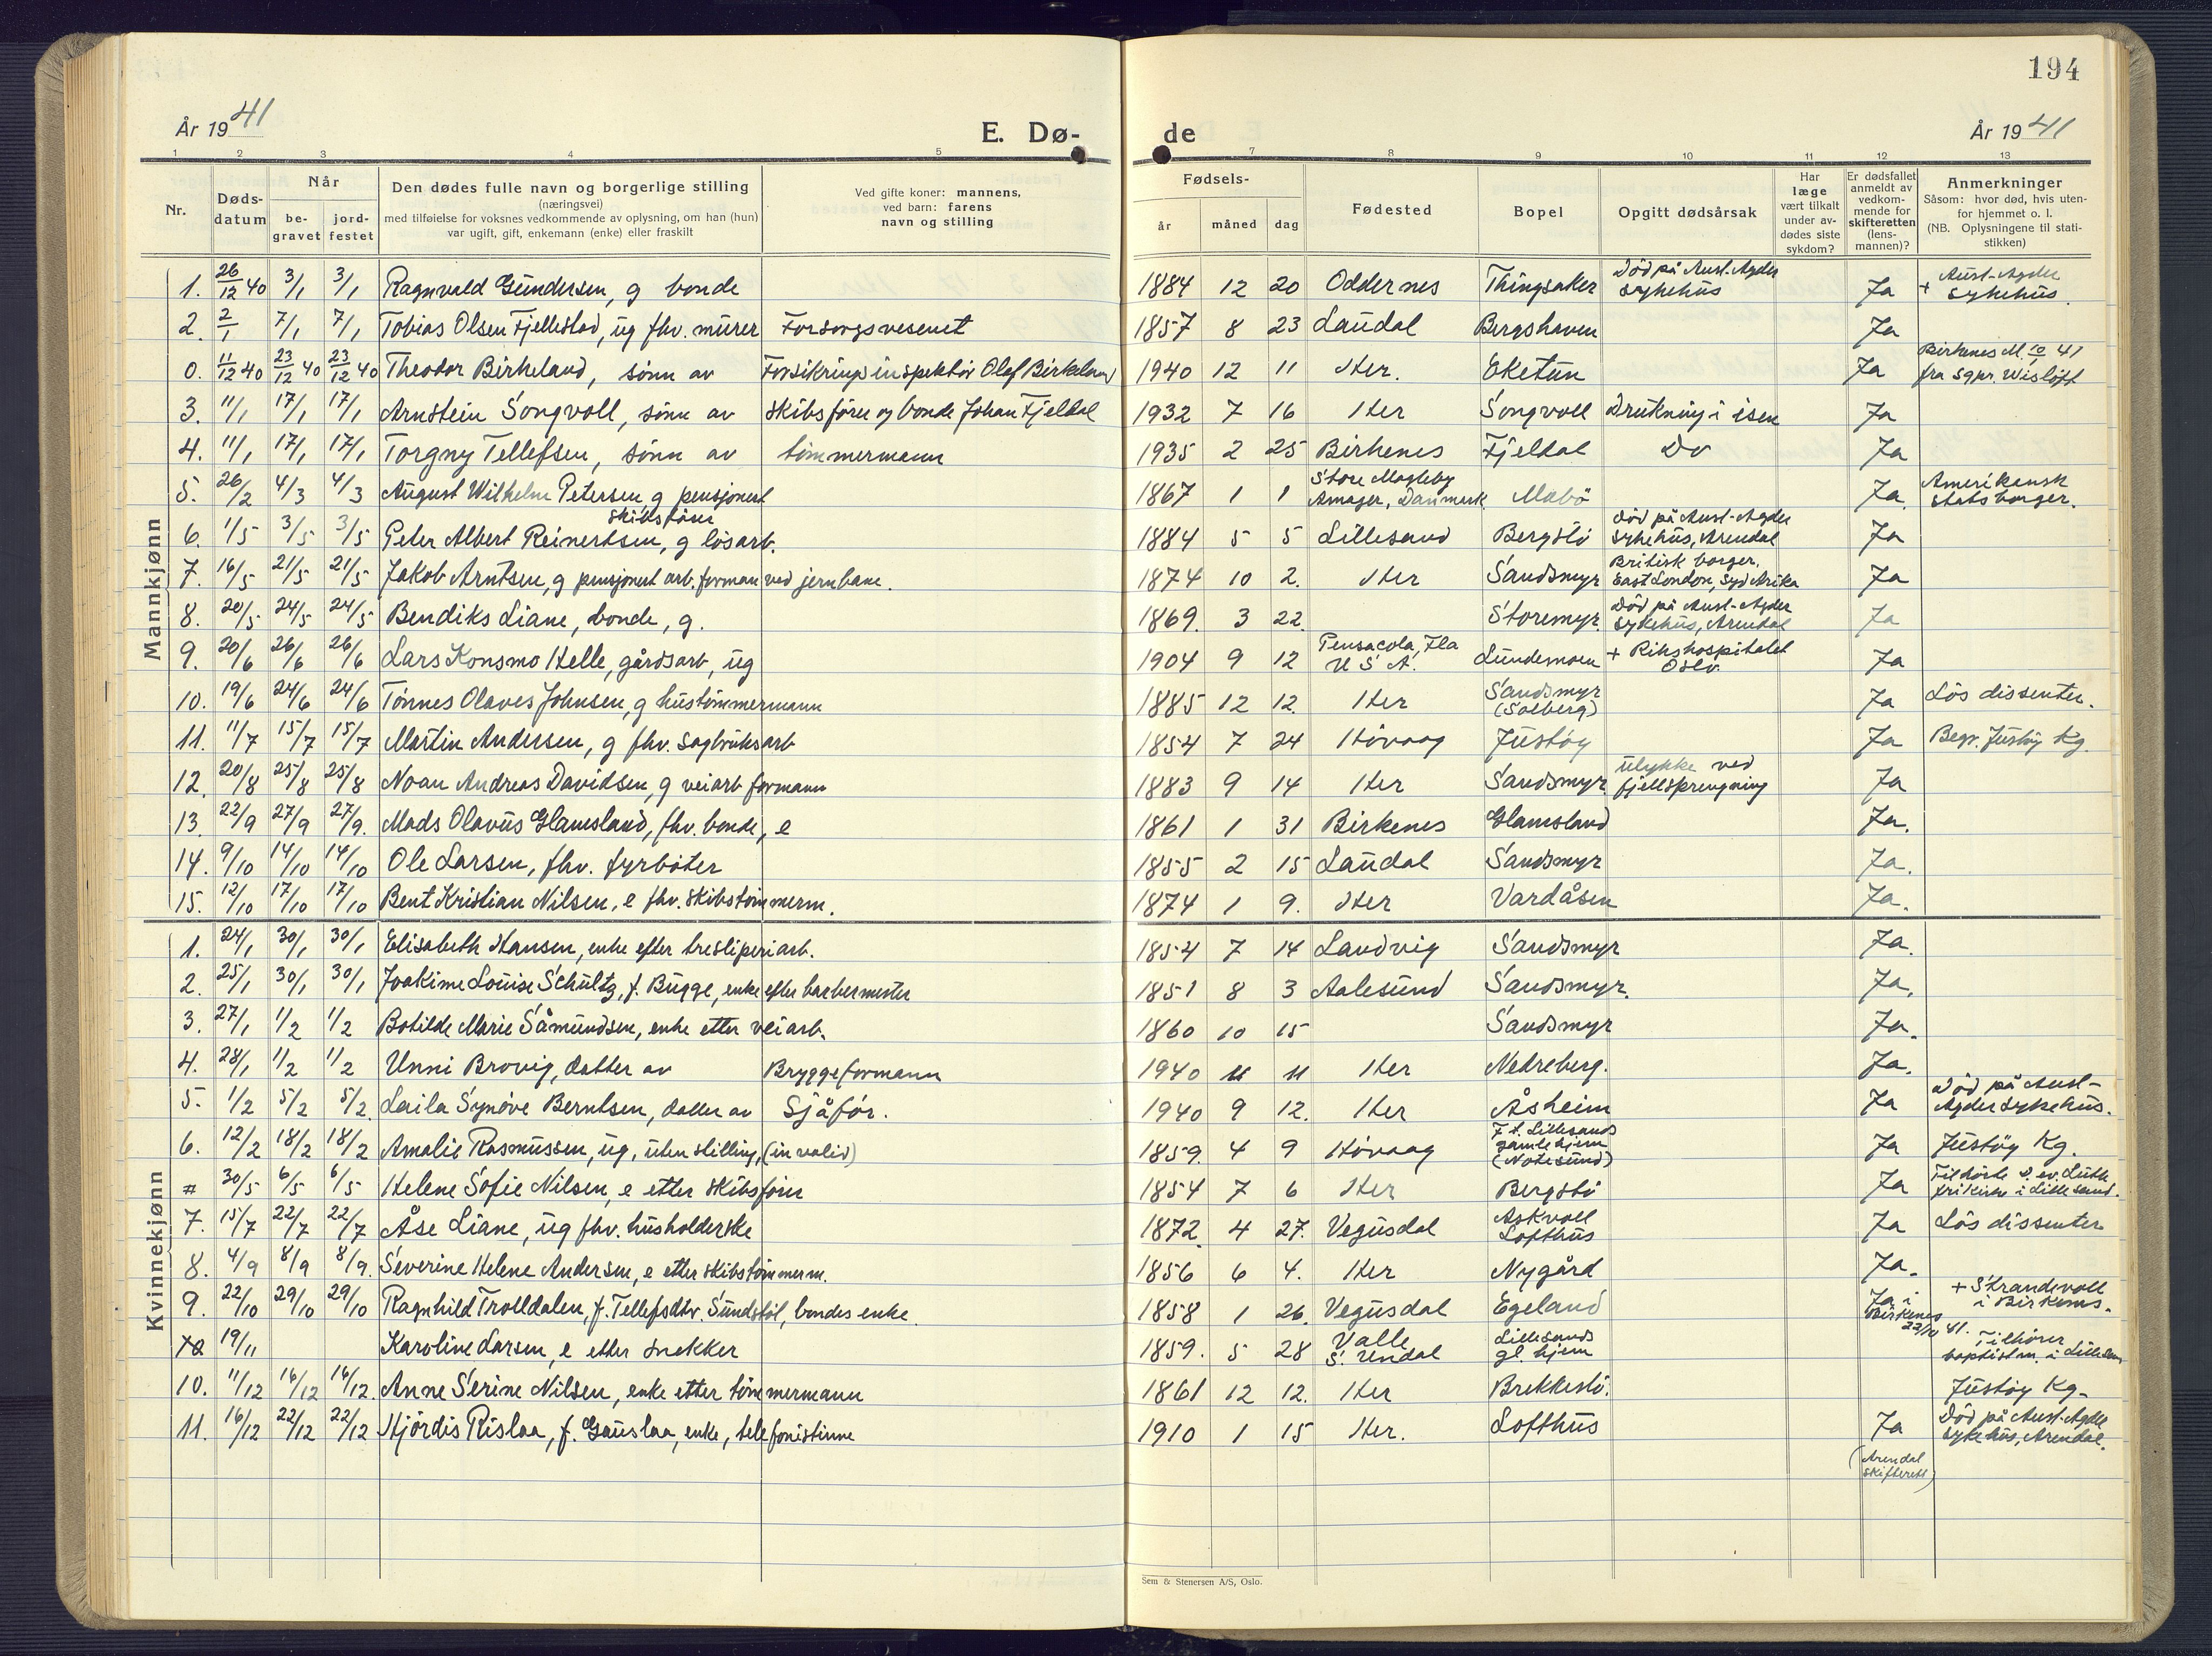 194
År 1941
E. Dø-
de
År 1941
1 2 3 4 5 7 8 9 10 11 12 13
Nr.
Døds-
datum
Når
be-
gravet
jord-
festet
Den dødes fulle navn og borgerlige stilling
(næringsvei)
med tilføielse for voksnes vedkommende av oplysning, om han (hun)
var ugift, gift, enkemann (enke) eller fraskilt
Ved gifte koner: mannens,
ved barn: farens
navn og stilling
Fødsels-
år måned dag
Fødested
Bopel
Opgitt dødsårsak
Har
læge
vært tilkalt
under av-
dødes siste
sykdom?
Er dødsfallet
anmeldt av
vedkom-
mende for
skifteretten
(lens-
mannen)?
Anmerkninger
Såsom: hvor død, hvis uten-
for hjemmet o. l.
(NB. Oplysningene til stati-
stikken)
Mannkjønn
1. 26/12 40 3/1 3/1 Ragnvald Gundersen, g bonde 1884 12 20 Oddernes Thingsaker Død på Aust-Agder sykehus Ja + Aust-Agder sykehus.
2. 2/1 7/1 7/1 Tobias Olsen Fjellestad, ug fhv. murer Forsorgsvesenet 1857 8 23 Laudal Bergshaven Ja
0. 11/12 40 23/12 40 23/12 40 Theodor Birkeland, sønn av Forsikringsinspektør Olaf Birkeland 1940 12 11 Her. Eketun Ja Birkenes M. 10/1 41 fra sgpr. Wisløff
3. 11/1 17/1 17/1 Arnstein Songvoll, sønn av skibsfører og bonde Johan Fjeldal 1932 7 16 Her Songvoll Drukning i isen Ja
4. 11/1 17/1 17/1 Torgny Tellefsen, sønn av tømmermann 1935 2 25 Birkenes Fjeldal Do Ja
5. 26/2 4/3 4/3 August Wilhelm Petersen g pensjonert skibsfører 1867 1 1 Store Magleby Amager, Danmark Mæbø Ja. Amerikansk statsborger.
6. 1/5 3/5 3/5 Peter Albert Reinertsen, g løsarb. 1884 5 5 Lillesand Bergstø Død på Aust-Agder sykehus, Arendal Ja
7. 16/5 21/5 21/5 Jakob Arntsen, g pensjonert arb. forman ved jernbane. 1874 10 2. Her Sandsmyr Britisk borger. East London, Syd Afrika Ja
8. 20/5 24/5 24/5 Bendiks Liane, bonde, g. 1869. 3 22. Storemyr. Død på Aust-Agder sykehus, Arendal Ja
9. 20/6 26/6 26/6 Lars Konsmo Helle, gårdsarb, ug 1904 9 12 Pensacola, Fla U S A. Lundemoen + Rikshospitalet Oslo. Ja
10. 19/6 24/6 24/6 Tønnes Olaves Johnsen, g hustømmermann 1885 12 12. Her Sandsmyr (Solberg) Ja Løs dissenter.
11. 11/7 15/7 15/7 Martin Andersen, g fhv. sagbruksarb 1854 7 24 Høvaag Justøy Ja Begr. Justøy Kg.
12. 20/8 25/8 25/8 Noan Andreas Davidsen, g veiarb formann 1883 9 14 Her Sandsmyr. ulykke ved fjellsprengning Ja
13. 22/9 27/9 27/9. Mads Olavus Glamsland, fhv. bonde, e 1861 1 31 Birkenes Glamsland Ja.
14. 9/10 14/10 14/10 Ole Larsen, fhv. fyrbøter 1855 2 15 Laudal Sandsmyr Ja.
15. 12/10 17/10 17/10 Bent Kristian Nilsen, e fhv. skibstømmerm. 1874 1 9. Her Vardåsen Ja.
Kvinnekjønn
1. 24/1 30/1 30/1 Elisabeth Hansen, enke efter tresliperiarb. 1854 7 14 Landvig Sandsmyr Ja.
2. 25/1 30/1 30/1 Joakime Louise Schultz, f. Bugge, enke efter barbermester 1851 8 3 Aalesund Sandsmyr. Ja.
3. 27/1 1/2 1/2 Botilde Marie Såmundsen, enke etter veiarb. 1860 10 15 Sandsmyr Ja.
4. 28/1 1/2 1/2 Unni Brovig, datter av Bryggeformann 1940 11 11 Her Nedreberg. Ja.
5. 1/2 5/2 5/2. Laila Synøve Berntsen, datter av Sjåfør. 1940 9 12. Her Åsheim Ja Død på Aust-Agder sykehus.
6. 12/2 18/2 18/2 Amalie Rasmussen, ug, uten stilling, (invalid) 1859. 4 9 Høvaag F. t. Lillesands gamlehjem (Notesund) Ja Justøy Kg.
# 30/5 6/5 6/5 Helene Sofie Nilsen, e etter skibsfører 1854 7 6 Her Bergstø Ja Tilhørte d. ev. Luth. frikirke i Lillesand.
7. 15/7 22/7 22/7 Åse Liane, ug fhv. husholderske 1872. 4 27. Vegusdal Askvoll Lofthus Ja Løs dissenter
8. 4/9 8/9 8/9. Severine Helene Andersen, e etter skibstømmerm. 1856 6 4. Her Nygård Ja.
9. 22/10 29/10 29/10 Ragnhild Trolldalen, f. Tellefsdtr. Sundstøl, bondes enke. 1858 1 26. Vegusdal Egeland Ja i Birkenes 22/10 41. + Strandvoll i Birkenes.
10 19/11 Karoline Larsen, e etter snekker 1859. 5 28 Valle S. Undal Lillesands gl. hjem Tilhører baptistm. i Lillesand
10. 11/12 16/12 16/12. Anne Serine Nilsen, enke etter tømmermann 1861 12 12. Her Brekkestø. Justøy Kg.
11. 16/12 22/12 22/12 Hjørdis Rislaa, f. Gauslaa, enke, telefonistinne 1910 1 15 Her. Lofthus Ja (Arendal skifterett) Død på Aust-Agder sykehus, Arendal.
Sem & Stenersen A/S, Oslo.